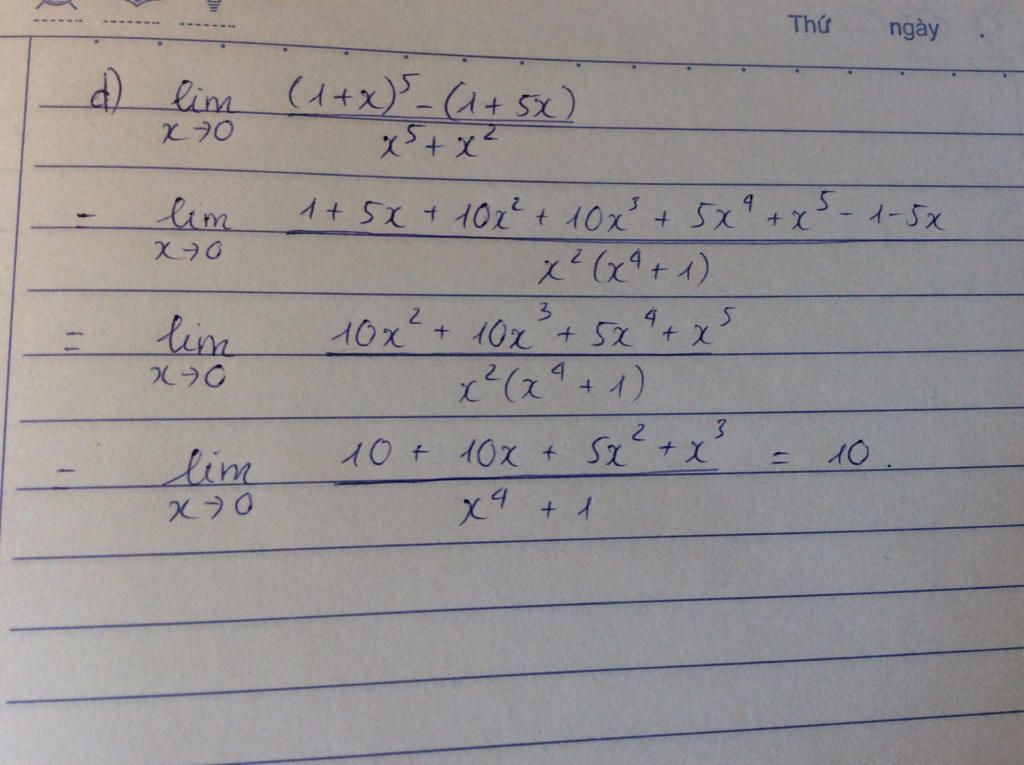 Thứ ngày .
d) lim x→0 ((1+x)⁵ - (1+5x)) / (x⁵ + x²)
= lim x→0 (1 + 5x + 10x² + 10x³ + 5x⁴ + x⁵ - 1 - 5x) / (x²(x⁴ + 1))
= lim x→0 (10x² + 10x³ + 5x⁴ + x⁵) / (x²(x⁴ + 1))
= lim x→0 (10 + 10x + 5x² + x³) / (x⁴ + 1) = 10.